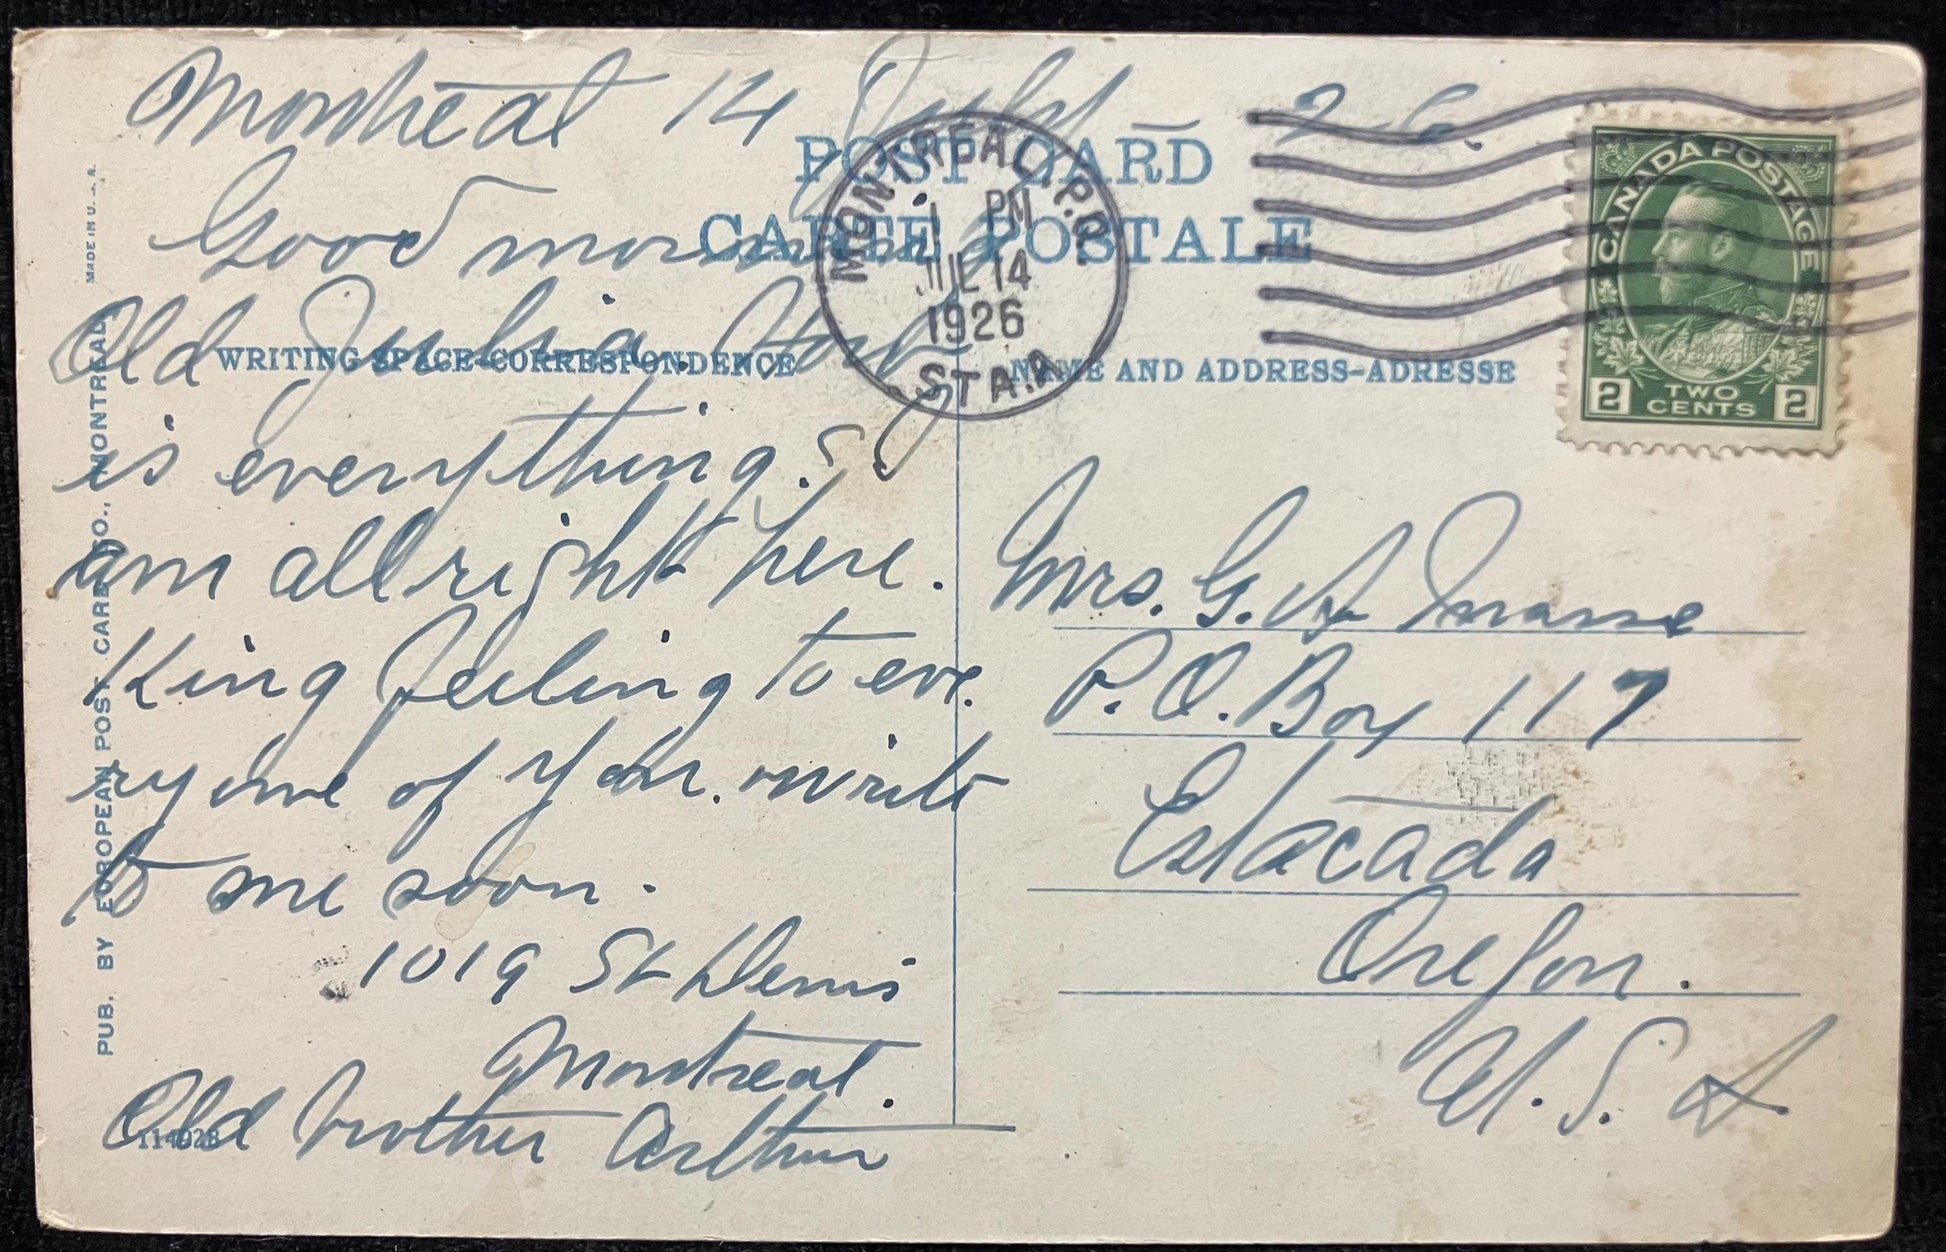 Montreal 14 July – 26
POST CARD
CARTE POSTALE
Good morning
Old Julia. How
WRITING SPACE-CORRESPONDENCE
is everything. S.
am all right here.
King feeling to eve.
ry one of you. write
to me soon.
1019 St Denis
Montreal.
Old brother Arthur
11402B
PUB. BY EUROPEAN POST CARD CO., MONTREAL.
MADE IN U.S.A.
MONTREAL, P.Q.
1 PM
JUL 14
1926
STA. A
CANADA POSTAGE
2 TWO CENTS 2
NAME AND ADDRESS-ADRESSE
Mrs. G. A
P.O. Box 117
Estacada
Oregon.
U.S.A.